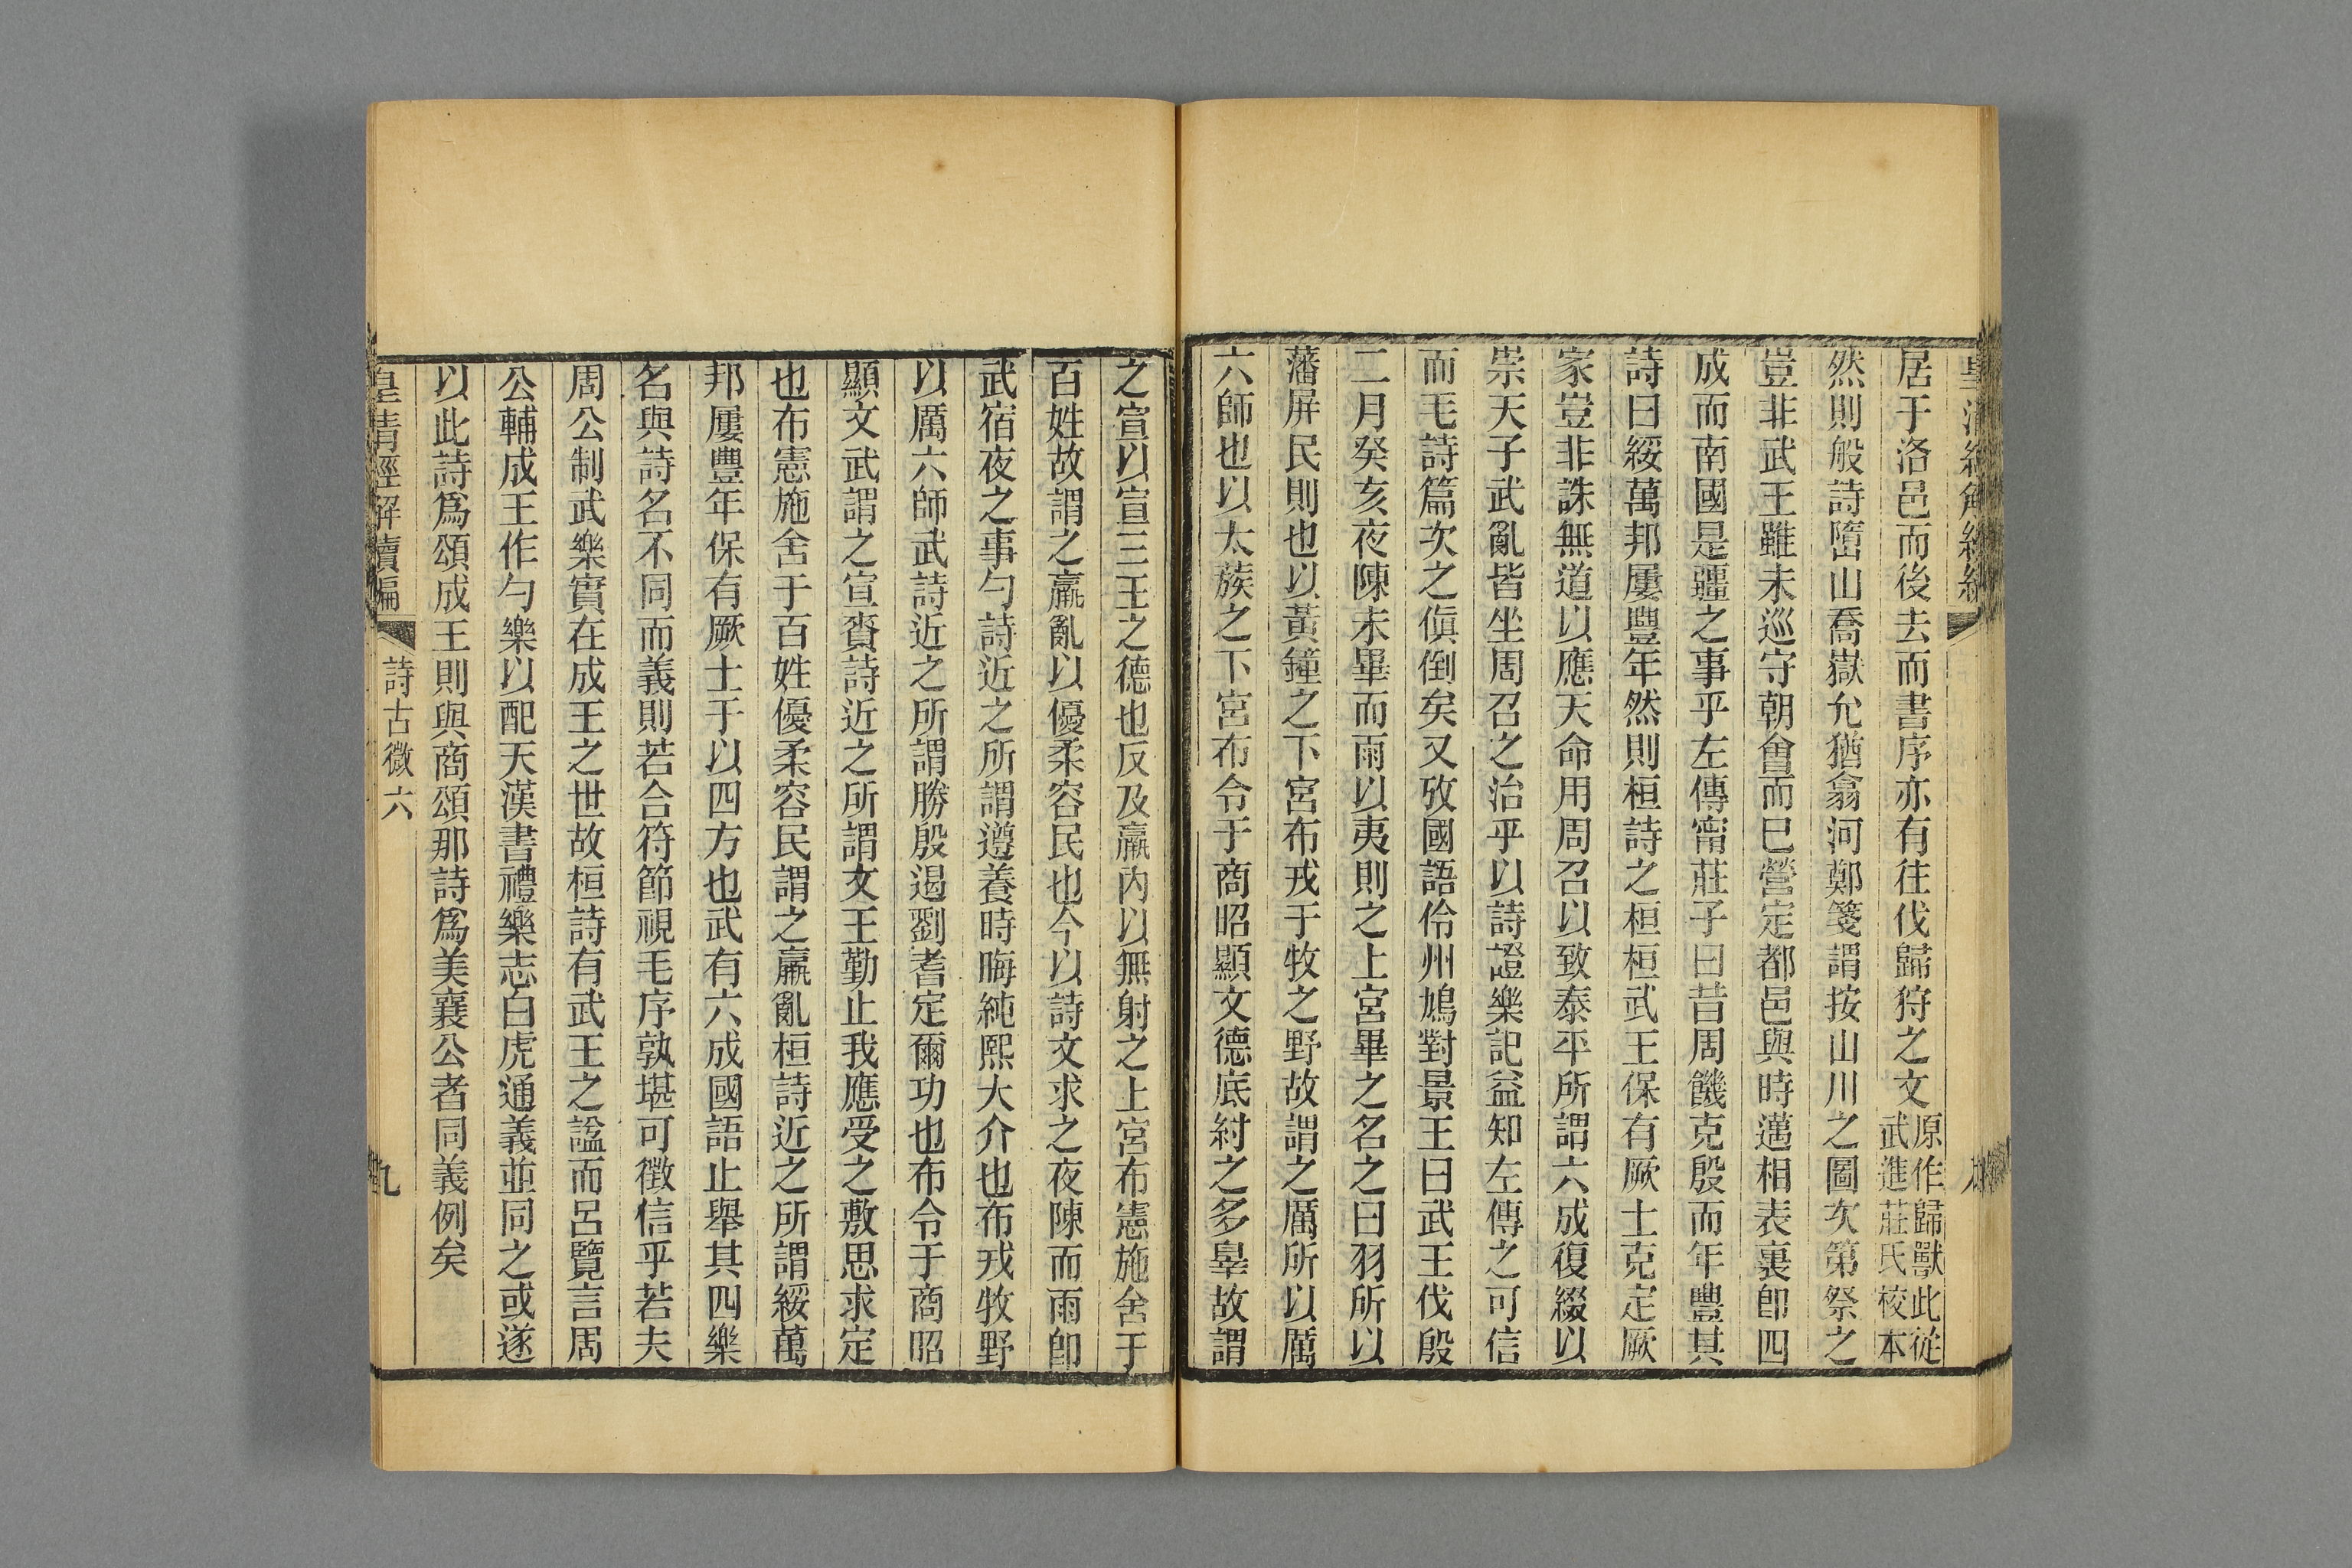 居于洛邑而後去而書序亦有往伐歸狩之文原作歸獸此從武進莊氏校本
然則般詩墮山喬嶽允猶翕河鄭箋謂按山川之圖次第祭之
豈非武王雖未巡守朝會而已營定都邑與時邁相表裏卽四
成而南國是疆之事乎左傳甯莊子曰昔周饑克殷而年豐其
詩曰綏萬邦屢豐年然則桓詩之桓桓武王保有厥士克定厥
家豈非誅無道以應天命用周召以致泰平所謂六成復綴以
崇天子武亂皆坐周召之治乎以詩證樂記益知左傳之可信
而毛詩篇次之傎倒矣又攷國語伶州鳩對景王曰武王伐殷
二月癸亥夜陳未畢而雨以夷則之上宮畢之名之曰羽所以
藩屏民則也以黃鐘之下宮布戎于牧之野故謂之厲所以厲
六師也以太蔟之下宮布令于商昭顯文德底紂之多辠故謂
之宣以宣三王之德也反及嬴內以無射之上宮布憲施舍于
百姓故謂之嬴亂以優柔容民也今以詩文求之夜陳而雨卽
武宿夜之事勺詩近之所謂遵養時晦純熙大介也布戎牧野
以厲六師武詩近之所謂勝殷遏劉耆定爾功也布令于商昭
顯文武謂之宣賚詩近之所謂文王勤止我應受之敷思求定
也布憲施舍于百姓優柔容民謂之嬴亂桓詩近之所謂綏萬
邦屢豐年保有厥士于以四方也武有六成國語止舉其四樂
名與詩名不同而義則若合符節視毛序孰堪可徵信乎若夫
周公制武樂實在成王之世故桓詩有武王之諡而呂覽言周
公輔成王作勺樂以配天漢書禮樂志白虎通義並同之或遂
以此詩爲頌成王則與商頌那詩爲美襄公者同義例矣
皇清經解續編
詩古微六
九